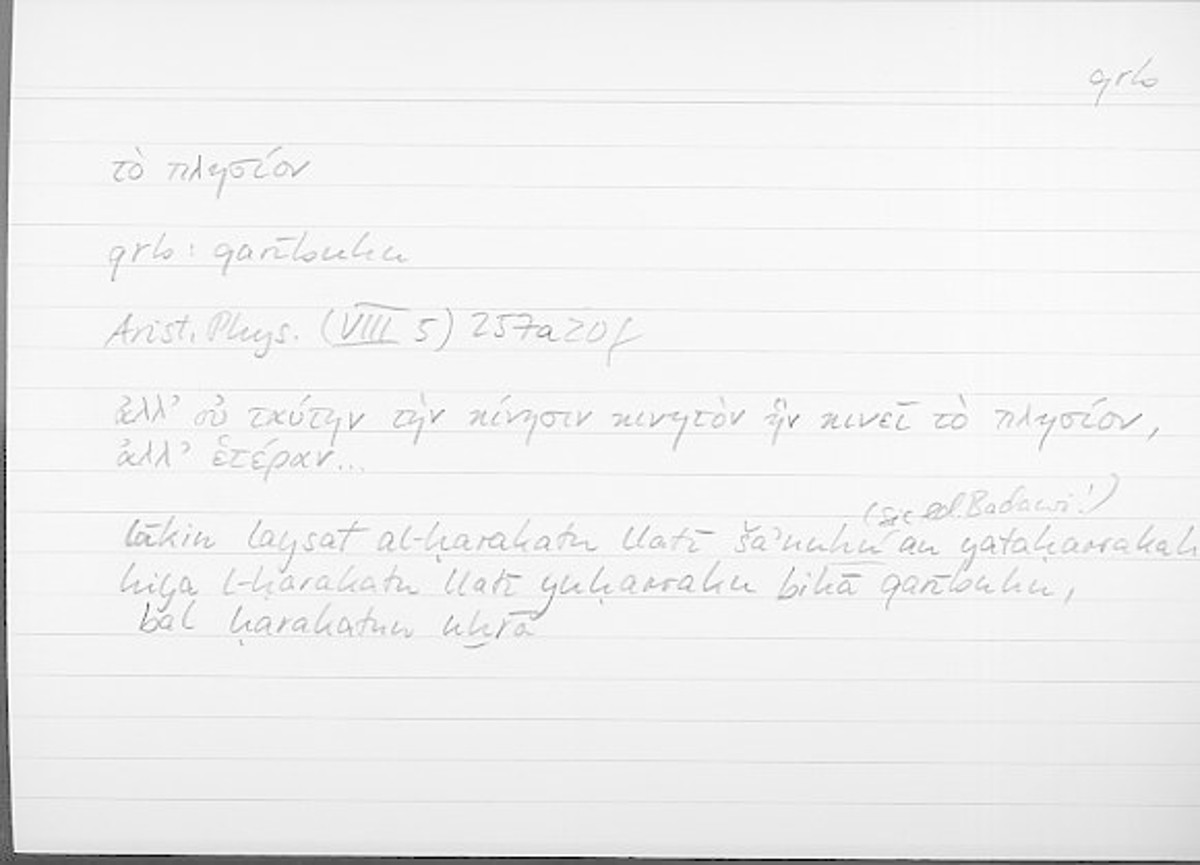 qrb
τὸ πλησίον
qrb : qarībuhu
Arist. Phys. (VIII 5) 257a20f
ἀλλ' οὐ ταύτην τὴν κίνησιν κινητὸν ἣν κινεῖ τὸ πλησίον,
ἀλλ' ἑτέραν...
(sic ed. Badawi!)
lākin laysat al-ḥarakatu llatī šaʾnuhu an yataḥarraka
hiya l-ḥarakatu llatī yuḥarriku bihā qarībuhu,
bal ḥarakatun uḫrā